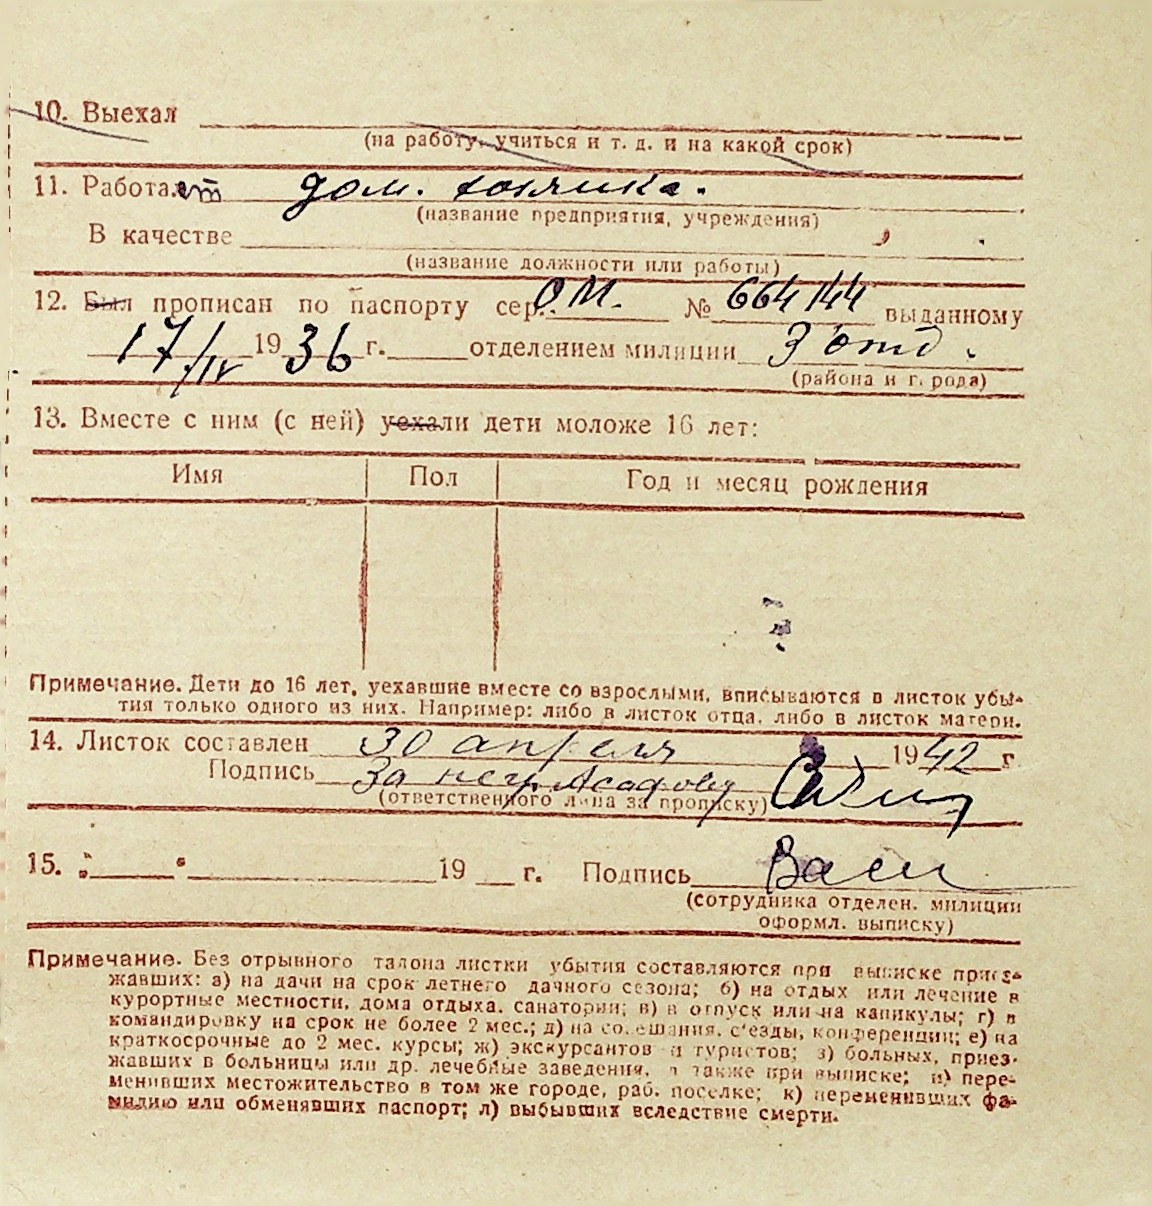 10. Выехал
(на работу, учиться и т. д. и на какой срок)
11. Работает дом. хозяйка.
(название предприятия, учреждения)
В качестве
(название должности или работы)
12. Был прописан по паспорту сер. О.М. № 664144 выданному
17/IV 1936 г. отделением милиции 3 отд.
(района и г. рода)
13. Вместе с ним (с ней) уехали дети моложе 16 лет:
Имя Пол Год и месяц рождения
Примечание. Дети до 16 лет, уехавшие вместе со взрослыми, вписываются в листок убы-
тия только одного из них. Например: либо в листок отца, либо в листок матери.
14. Листок составлен 30 апреля 1942 г
Подпись За негр. Асадову
(ответственного лица за прописку)
15. 19 г. Подпись Васи
(сотрудника отделен. милиции
оформл. выписку)
Примечание. Без отрывного талона листки убытия составляются при выписке приез-
жавших: а) на дачи на срок летнего дачного сезона; б) на отдых или лечение в
курортные местности, дома отдыха, санатории; в) в отпуск или на каникулы; г) в
командировку на срок не более 2 мес.; д) на совещания, с'езды, конференции; е) на
краткосрочные до 2 мес. курсы; ж) экскурсантов и туристов; з) больных, приез-
жавших в больницы или др. лечебные заведения, а также при выписке; и) пере-
менивших местожительство в том же городе, раб. поселке; к) переменивших фа-
милию или обменявших паспорт; л) выбывших вследствие смерти.